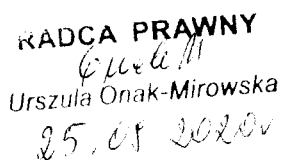 RADCA PRAWNY
Urszula Onak-Mirowska
25.08 2020r